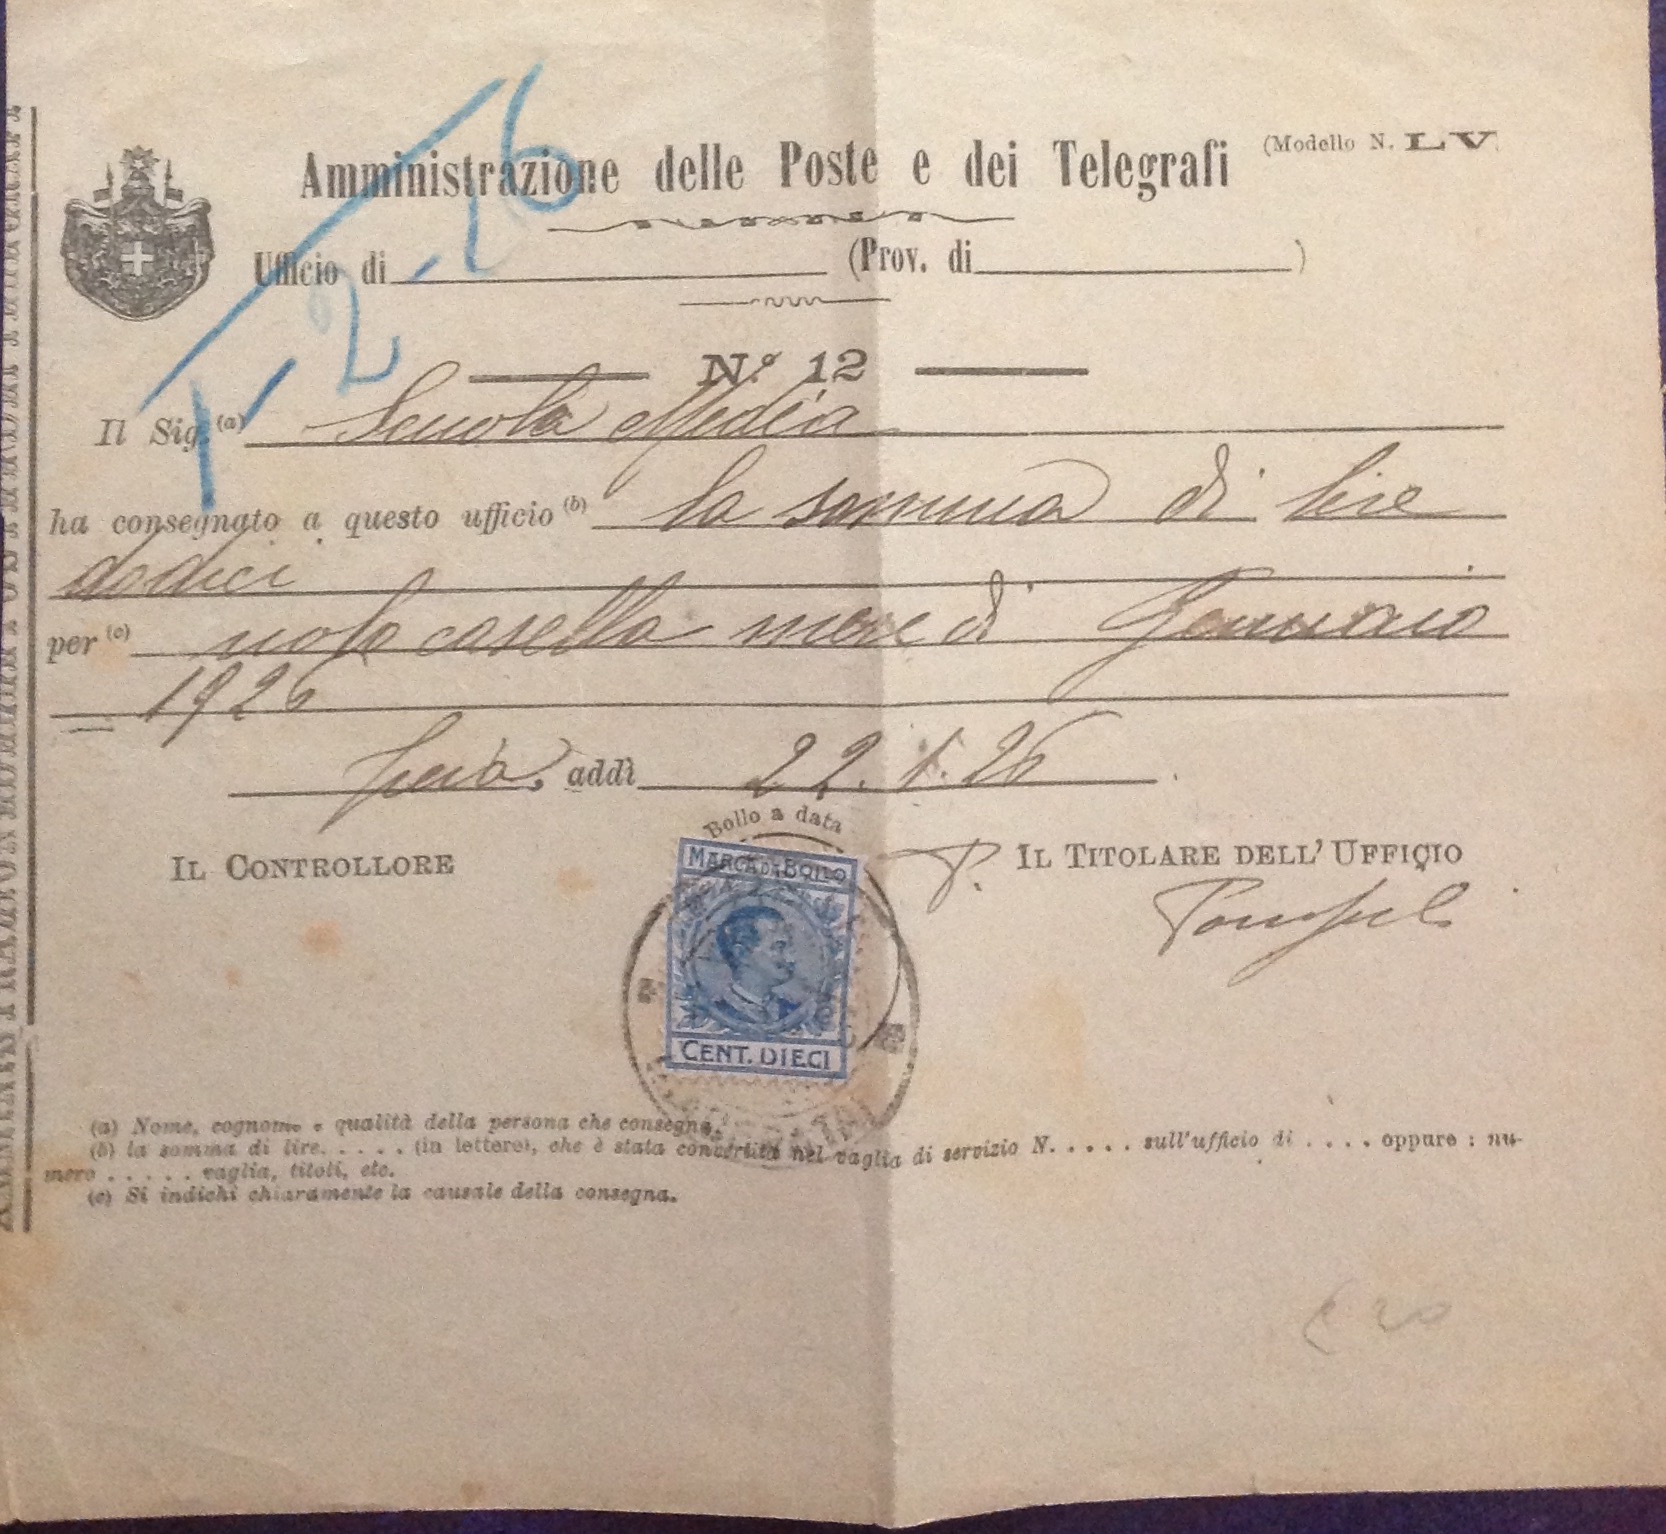 Amministrazione delle Poste e dei Telegrafi (Modello N. LV)
Ufficio di (Prov. di )
1-2-26
N.º 12
Il Sig. (a) Scuola Media
ha consegnato a questo ufficio (b) la somma di lire
dodici
per (c) nolo casella mese di Gennaio
1926
addì 22.1.26
Bollo a data
IL CONTROLLORE P. IL TITOLARE DELL'UFFICIO
MARCA DA BOLLO
CENT. DIECI
(a) Nome, cognome e qualità della persona che consegna.
(b) la somma di lire. . . . . (in lettere), che è stata convertita nel vaglia di servizio N. . . . . sull'ufficio di . . . . oppure : nu-
mero . . . . . vaglia, titoli, etc.
(c) Si indichi chiaramente la causale della consegna.